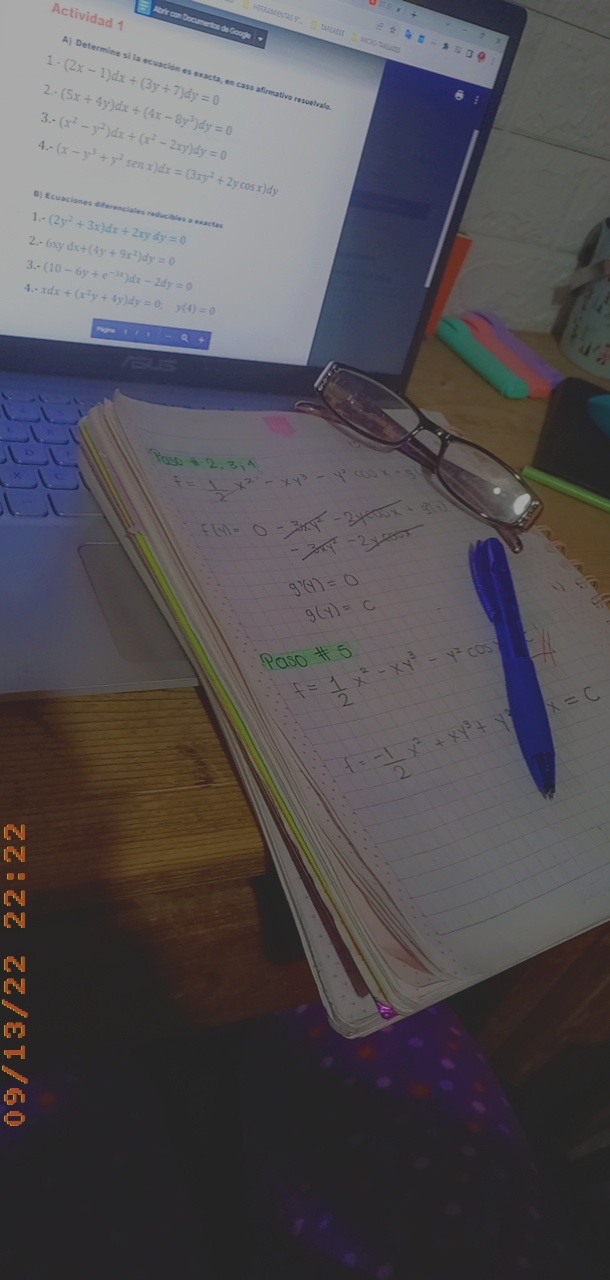 Actividad 1
Abrir con Documentos de Google
A) Determine si la ecuación es exacta, en caso afirmativo resuélvalo.
1.- (2x − 1)dx + (3y + 7)dy = 0
2.- (5x + 4y)dx + (4x − 8y³)dy = 0
3.- (x² − y²)dx + (x² − 2xy)dy = 0
4.- (x − y³ + y² sen x)dx = (3xy² + 2y cos x)dy
B) Ecuaciones diferenciales reducibles a exactas
1.- (2y² + 3x)dx + 2xy dy = 0
2.- 6xy dx+(4y + 9x²)dy = 0
3.- (10 − 6y + e⁻³ˣ)dx − 2dy = 0
4.- xdx + (x²y + 4y)dy = 0; y(4) = 0
Página 1 / 1 − +
ASUS
Paso # 2, 3, 4
f = 1/2 x² - xy³ - y² cos x +
f(y) = 0 - 3xy² - 2y cos x +
- 3xy² - 2y cos x
g'(y) = 0
g(y) = C
Paso # 5
f = 1/2 x² - xy³ - y² cos
f = -1/2 x² + xy³ + y² x = C
09/13/22 22:22